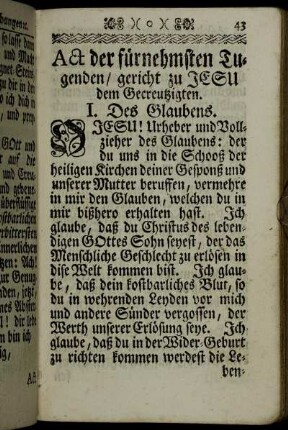 43
Act der fürnehmsten Tu-
genden/ gericht zu JESU
dem Gecreutzigten.
I. Des Glaubens.
O JESU! Urheber und Voll-
zieher des Glaubens: der
du uns in die Schooß der
heiligen Kirchen deiner Gesponß und
unserer Mutter beruffen, vermehre
in mir den Glauben, welchen du in
mir bißhero erhalten hast. Ich
glaube, daß du Christus des leben-
digen GOttes Sohn seyest, der das
Menschliche Geschlecht zu erlösen in
dise Welt kommen bist. Ich glau-
be, daß dein kostbarliches Blut, so
du in wehrenden Leyden vor mich
und andere Sünder vergossen, der
Werth unserer Erlösung seye. Ich
glaube, daß du in der Wider-Geburt
zu richten kommen werdest die Le-
ben-